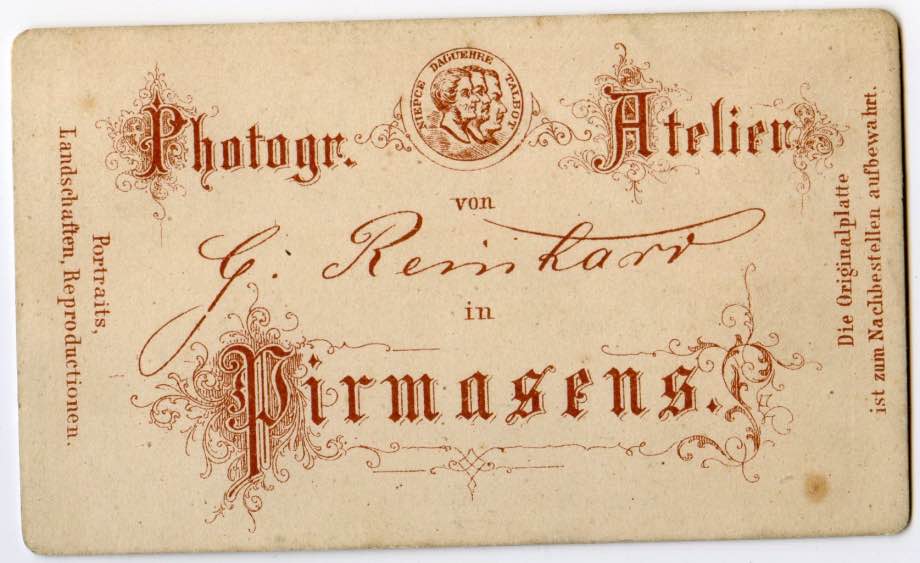 NIEPCE DAGUERRE TALBOT
Photogr. Atelier
von
G. Reinhard
in
Pirmasens.
Portraits,
Landschaften, Reproductionen.
Die Originalplatte
ist zum Nachbestellen aufbewahrt.